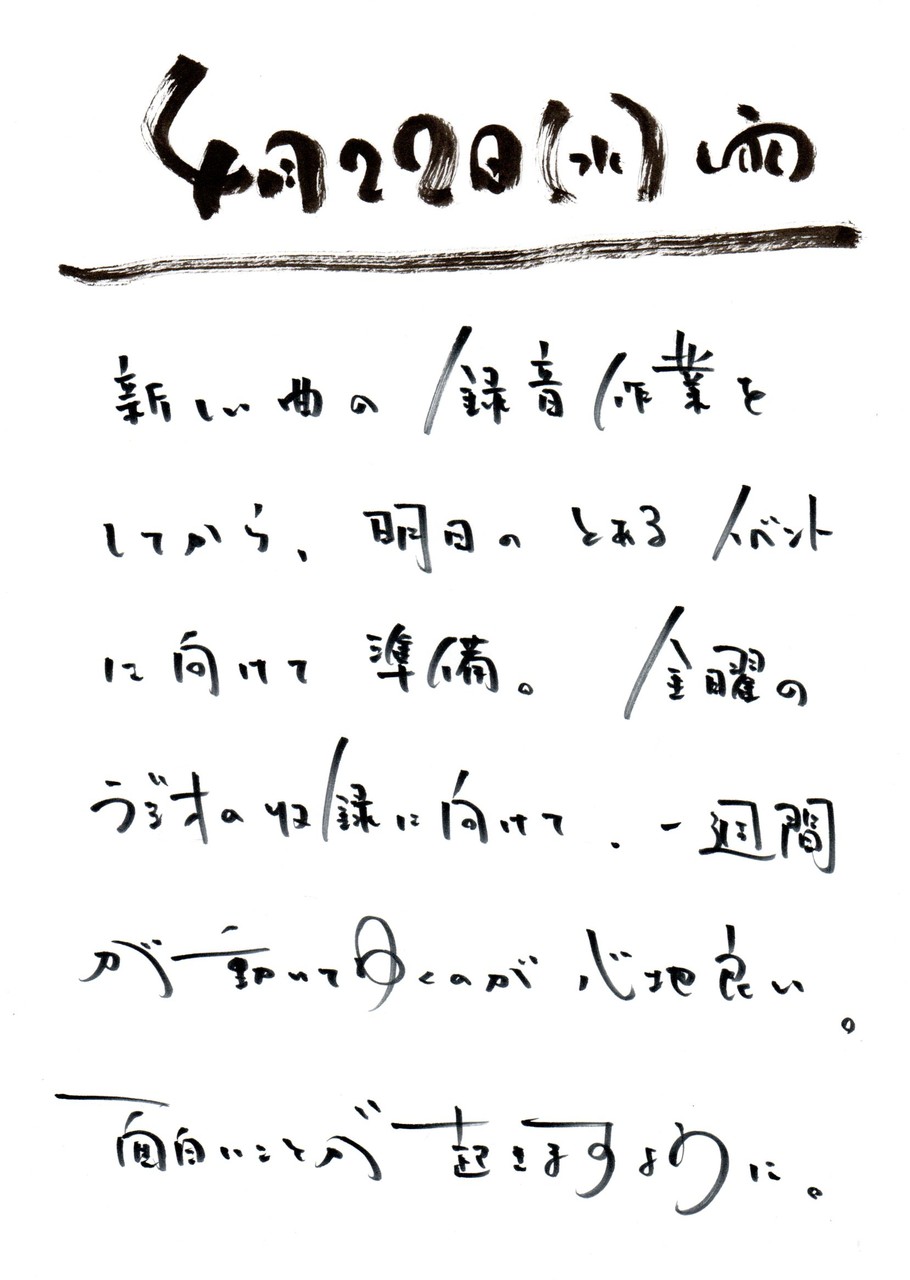 4月22日(水) 雨
新しい曲の録音作業を
してから、明日のとあるイベント
に向けて準備。金曜の
ラジオの収録に向けて、一週間
が動いてゆくのが心地良い。
面白いことが起きますように。